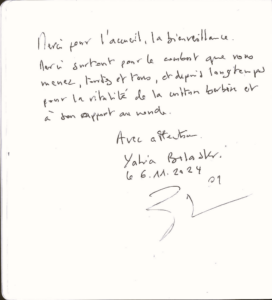 Merci pour l'accueil, la bienveillance.
Merci surtout pour le combat que vous
menez, toutes et tous, et depuis longtemps
pour la vitalité de la culture berbère et
à son rapport au monde.
Avec attention
Yahia Belaskri
le 6.11.2024